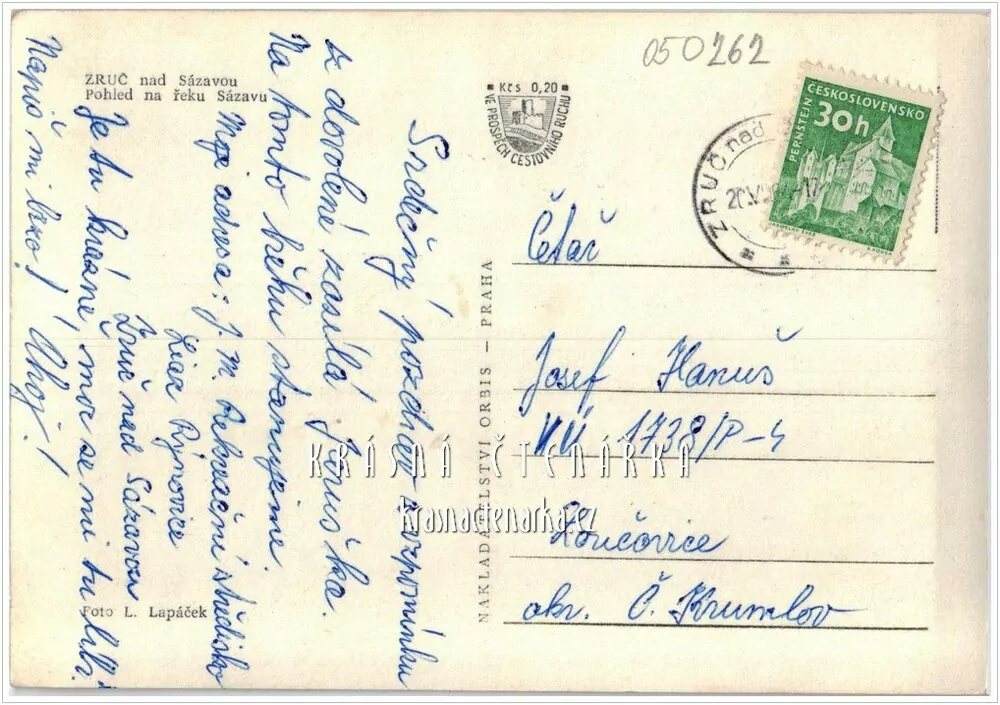 ZRUČ nad Sázavou
Pohled na řeku Sázavu
Srdečný pozdrav a vzpomínku
z dovolené zasílá Jiruška.
Na tomto břehu stanujeme
Moje adresa: J. M. Rekreační středisko
Liaz Rýnovice
Zruč nad Sázavou
Je tu krásně, moc se mi tu líbí.
Napiš mi brzo! Ahoj!
Foto L. Lapáček
NAKLADATELSTVÍ ORBIS – PRAHA
Kčs 0,20
VE PROSPĚCH CESTOVNÍHO RUCHU
050262
ZRUČ nad
ČESKOSLOVENSKO
PERNŠTEJN
30h
Četař
Josef Hanuš
VÚ 1738/P-4
Loučovice
okr. Č. Krumlov
KRÁSNÁ ČTENÁŘKA
krasnactenarka.cz